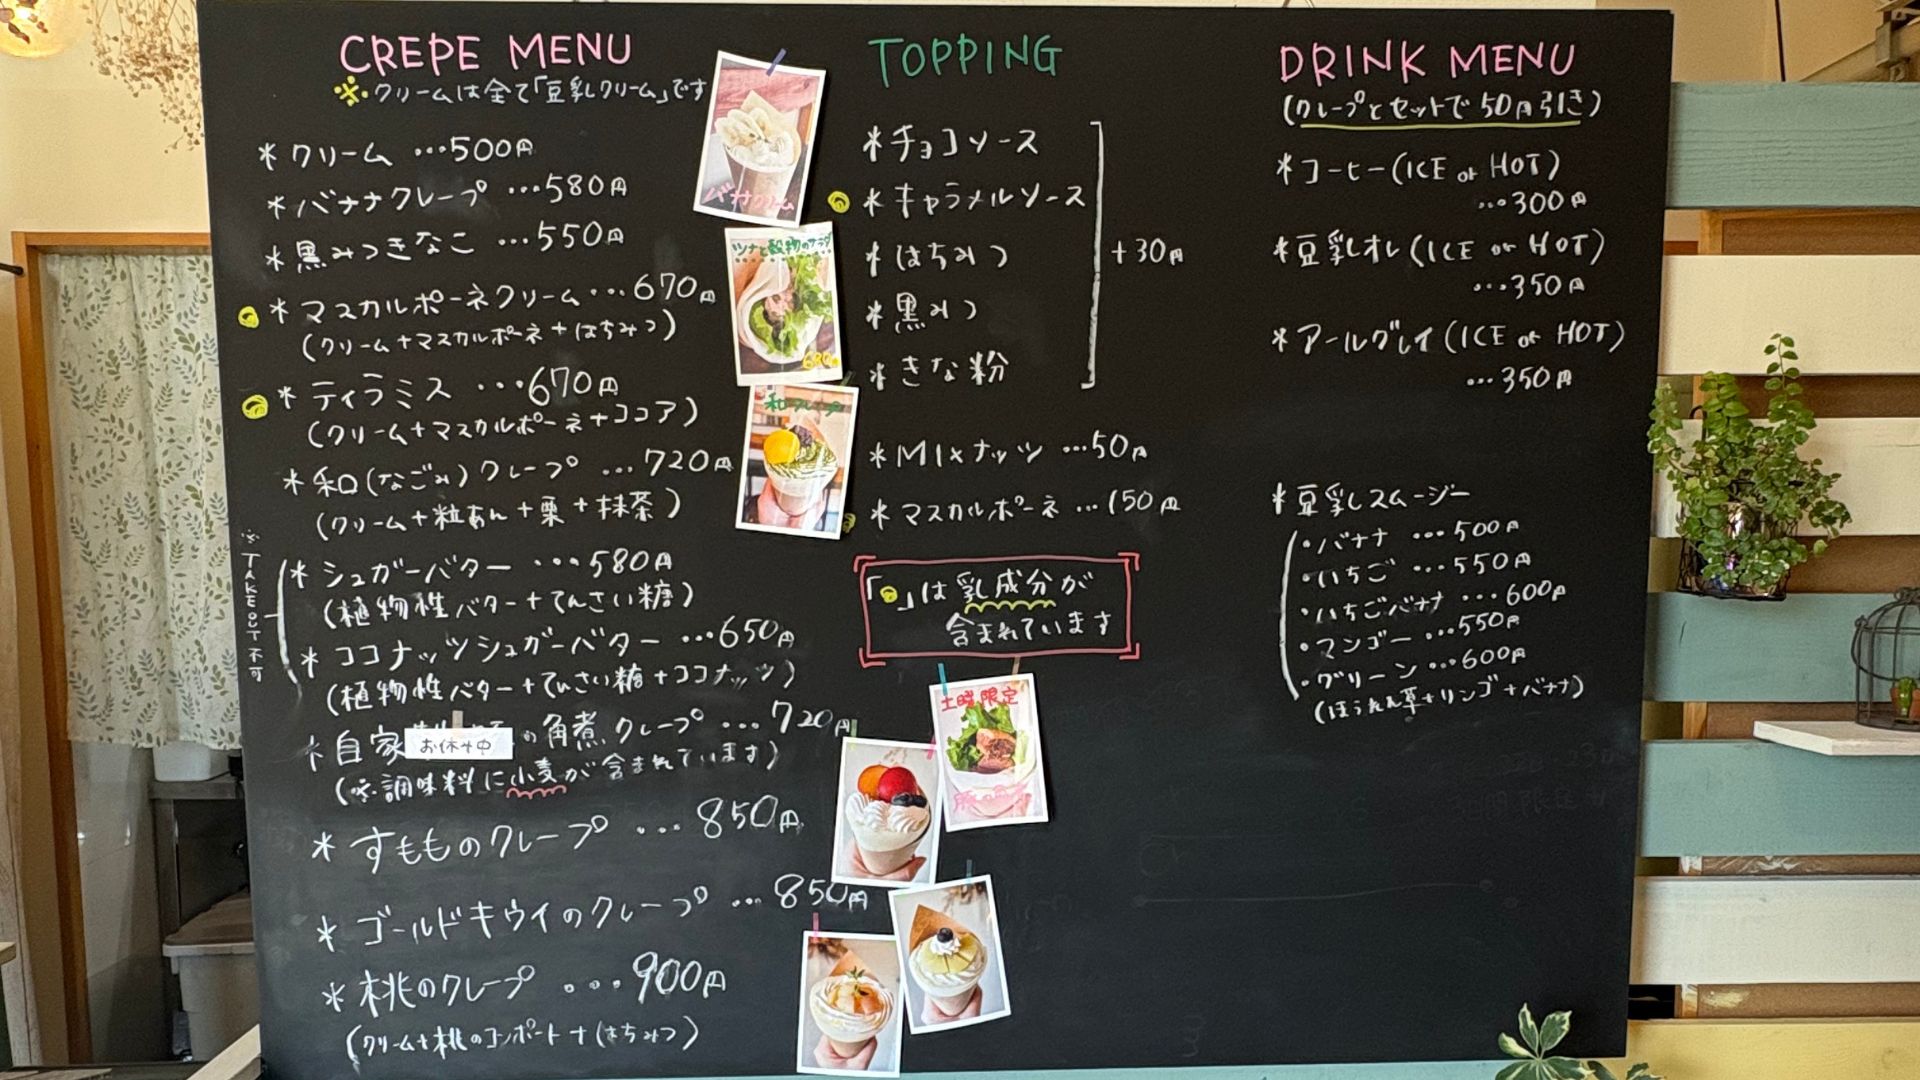 CREPE MENU
※クリームは全て「豆乳クリーム」です
*クリーム …500円
*バナナクレープ …580円
*黒みつきなこ …550円
*マスカルポーネクリーム …670円
(クリーム+マスカルポーネ+はちみつ)
*ティラミス …670円
(クリーム+マスカルポーネ+ココア)
*和(なごみ)クレープ …720円
(クリーム+粒あん+栗+抹茶)
※TAKEOUT不可
*シュガーバター …580円
(植物性バター+てんさい糖)
*ココナッツシュガーバター …650円
(植物性バター+てんさい糖+ココナッツ)
*自家 の角煮クレープ …720円
お休み中
(※調味料に小麦が含まれています)
*すもものクレープ …850円
*ゴールドキウイのクレープ …850円
*桃のクレープ …900円
(クリーム+桃のコンポート+はちみつ)
バナナクリーム
ツナと穀物のサラダ
680円
和クレープ
TOPPING
*チョコソース
*キャラメルソース
*はちみつ
*黒みつ
*きな粉
+30円
*MIXナッツ …50円
*マスカルポーネ …150円
「 」は乳成分が
含まれています
土曜限定
DRINK MENU
(クレープとセットで50円引き)
*コーヒー(ICE or HOT)
…300円
*豆乳オレ(ICE or HOT)
…350円
*アールグレイ(ICE or HOT)
…350円
*豆乳スムージー
・バナナ …500円
・いちご …550円
・いちごバナナ …600円
・マンゴー …550円
・グリーン …600円
(ほうれん草+リンゴ+バナナ)